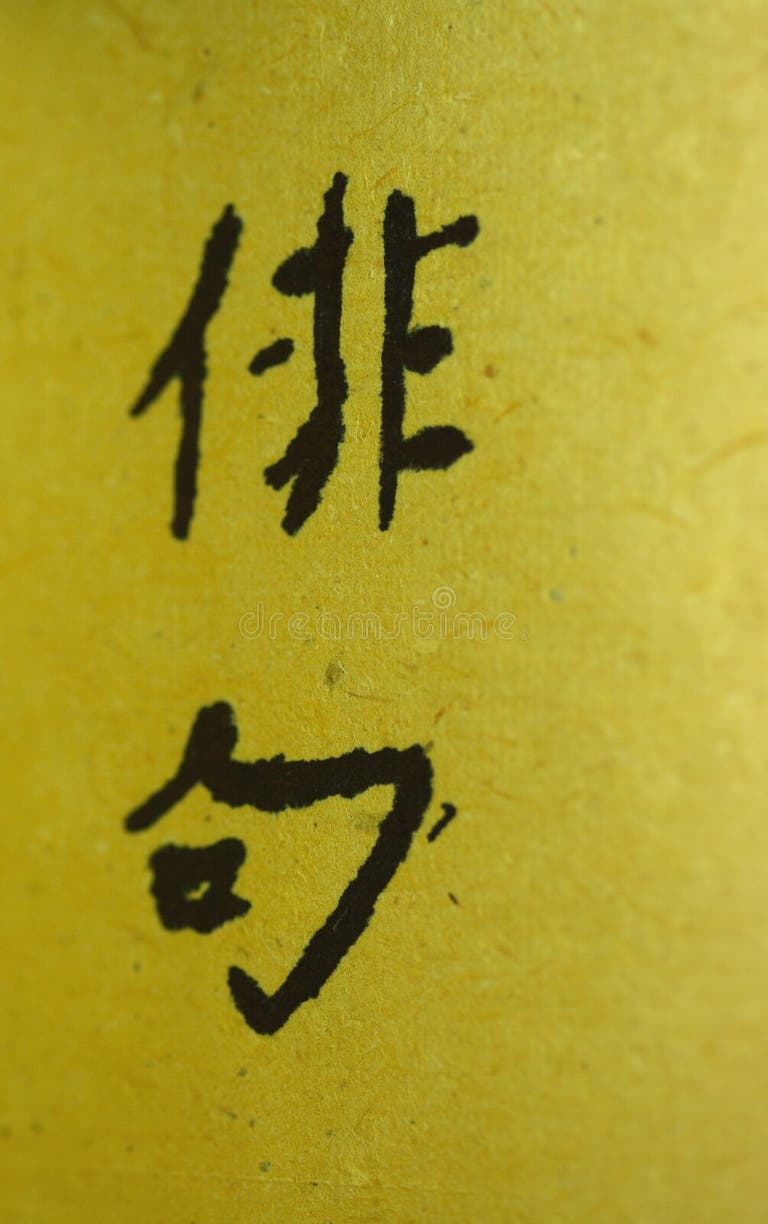 俳句
dreamstime.com